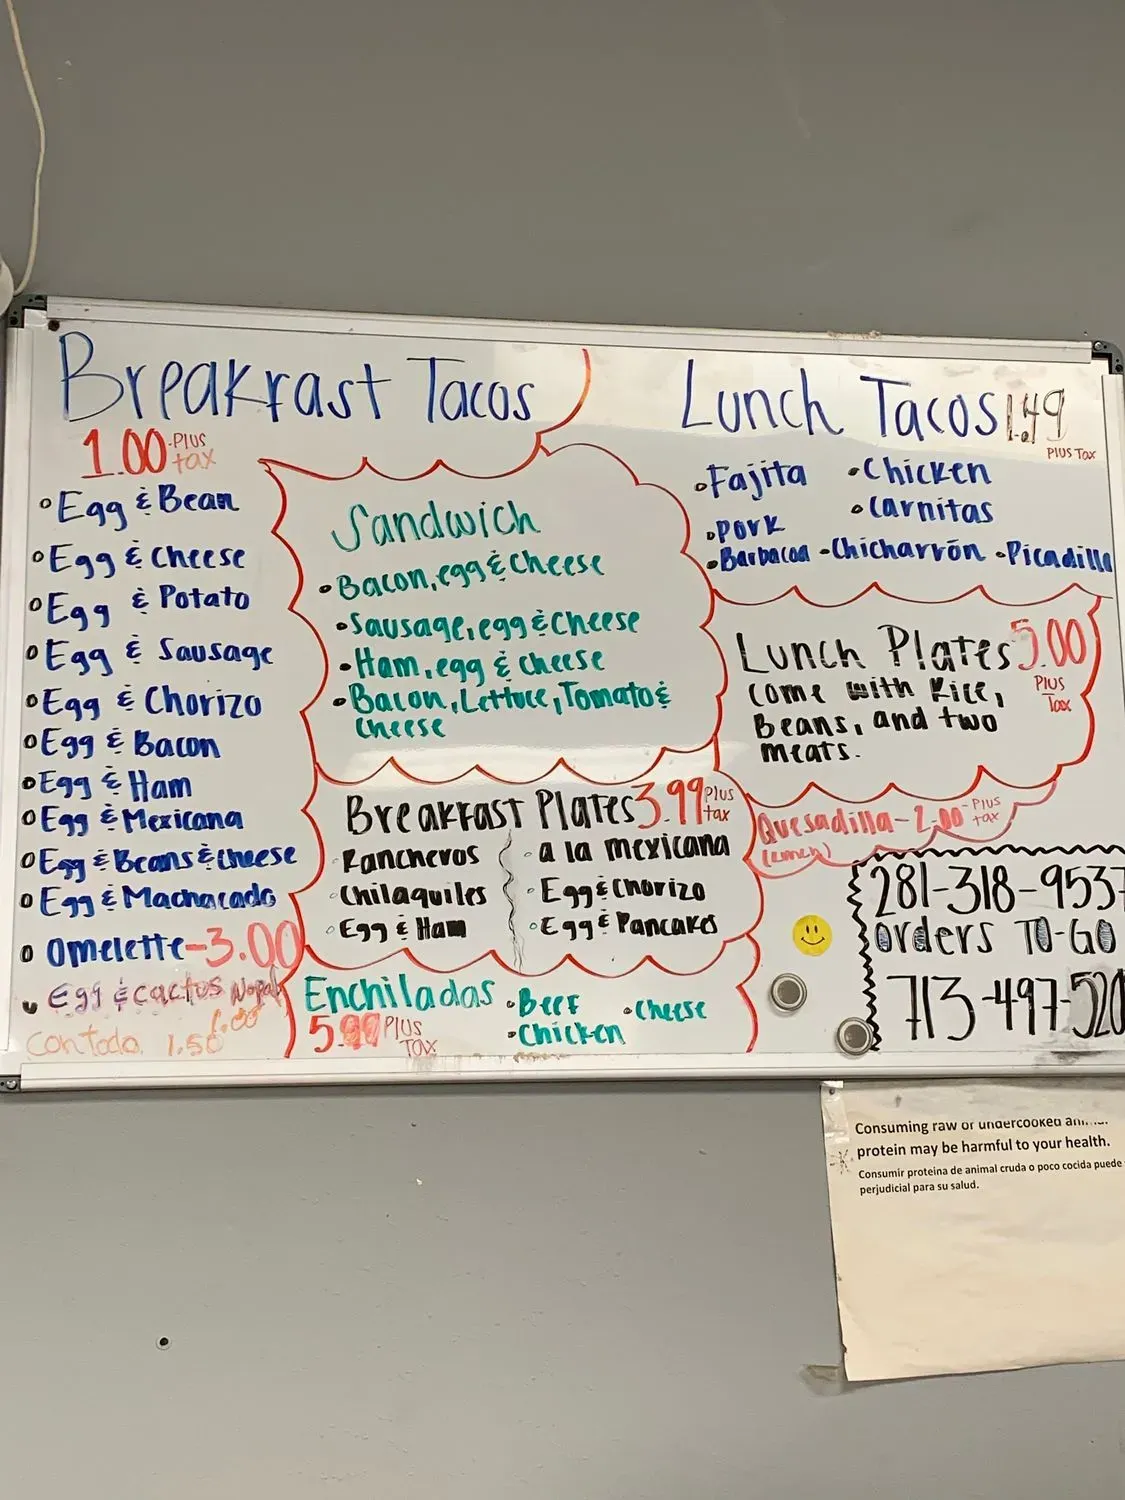 Breakfast Tacos
1.00 Plus
tax
Egg & Bean
Egg & Cheese
Egg & Potato
Egg & Sausage
Egg & Chorizo
Egg & Bacon
Egg & Ham
Egg & Mexicana
Egg & Beans & Cheese
Egg & Machacado
Omelette-3.00
Egg & cactus Nopal
1.00
Con Todo 1.50
Sandwich
Bacon, egg & Cheese
Sausage, egg & Cheese
Ham, egg & cheese
Bacon, Lettuce, Tomato &
Cheese
Breakfast Plates 3.99 Plus
tax
Rancheros
Chilaquiles
Egg & Ham
a la mexicana
Egg & Chorizo
Egg & Pancakes
Enchiladas
5.99 Plus
Tax
Beef
Cheese
Chicken
Lunch Tacos 1.49
Plus Tax
Fajita
Chicken
Pork
Carnitas
Barbacoa
Chicharrón
Picadillo
Lunch Plates 5.00
Plus
Tax
Come with Rice,
Beans, and two
meats.
Quesadilla-2.00 Plus
tax
(Lunch)
281-318-9537
orders TO-GO
713-497-520
Consuming raw or undercooked
protein may be harmful to your health.
Consumir proteina de animal cruda o poco cocida puede
perjudicial para su salud.